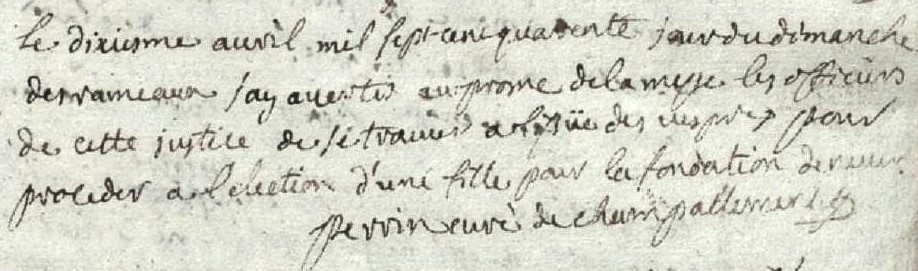 le dixiesme auril mil sept cent quarente jour du dimanche
des rameaux j'ay auertis au prome de la messe les officiers
de cette justice de se trouuer a l'issüe des uespres pour
proceder a l'election d'une fille pour la fondation de
perrin curé de champallement